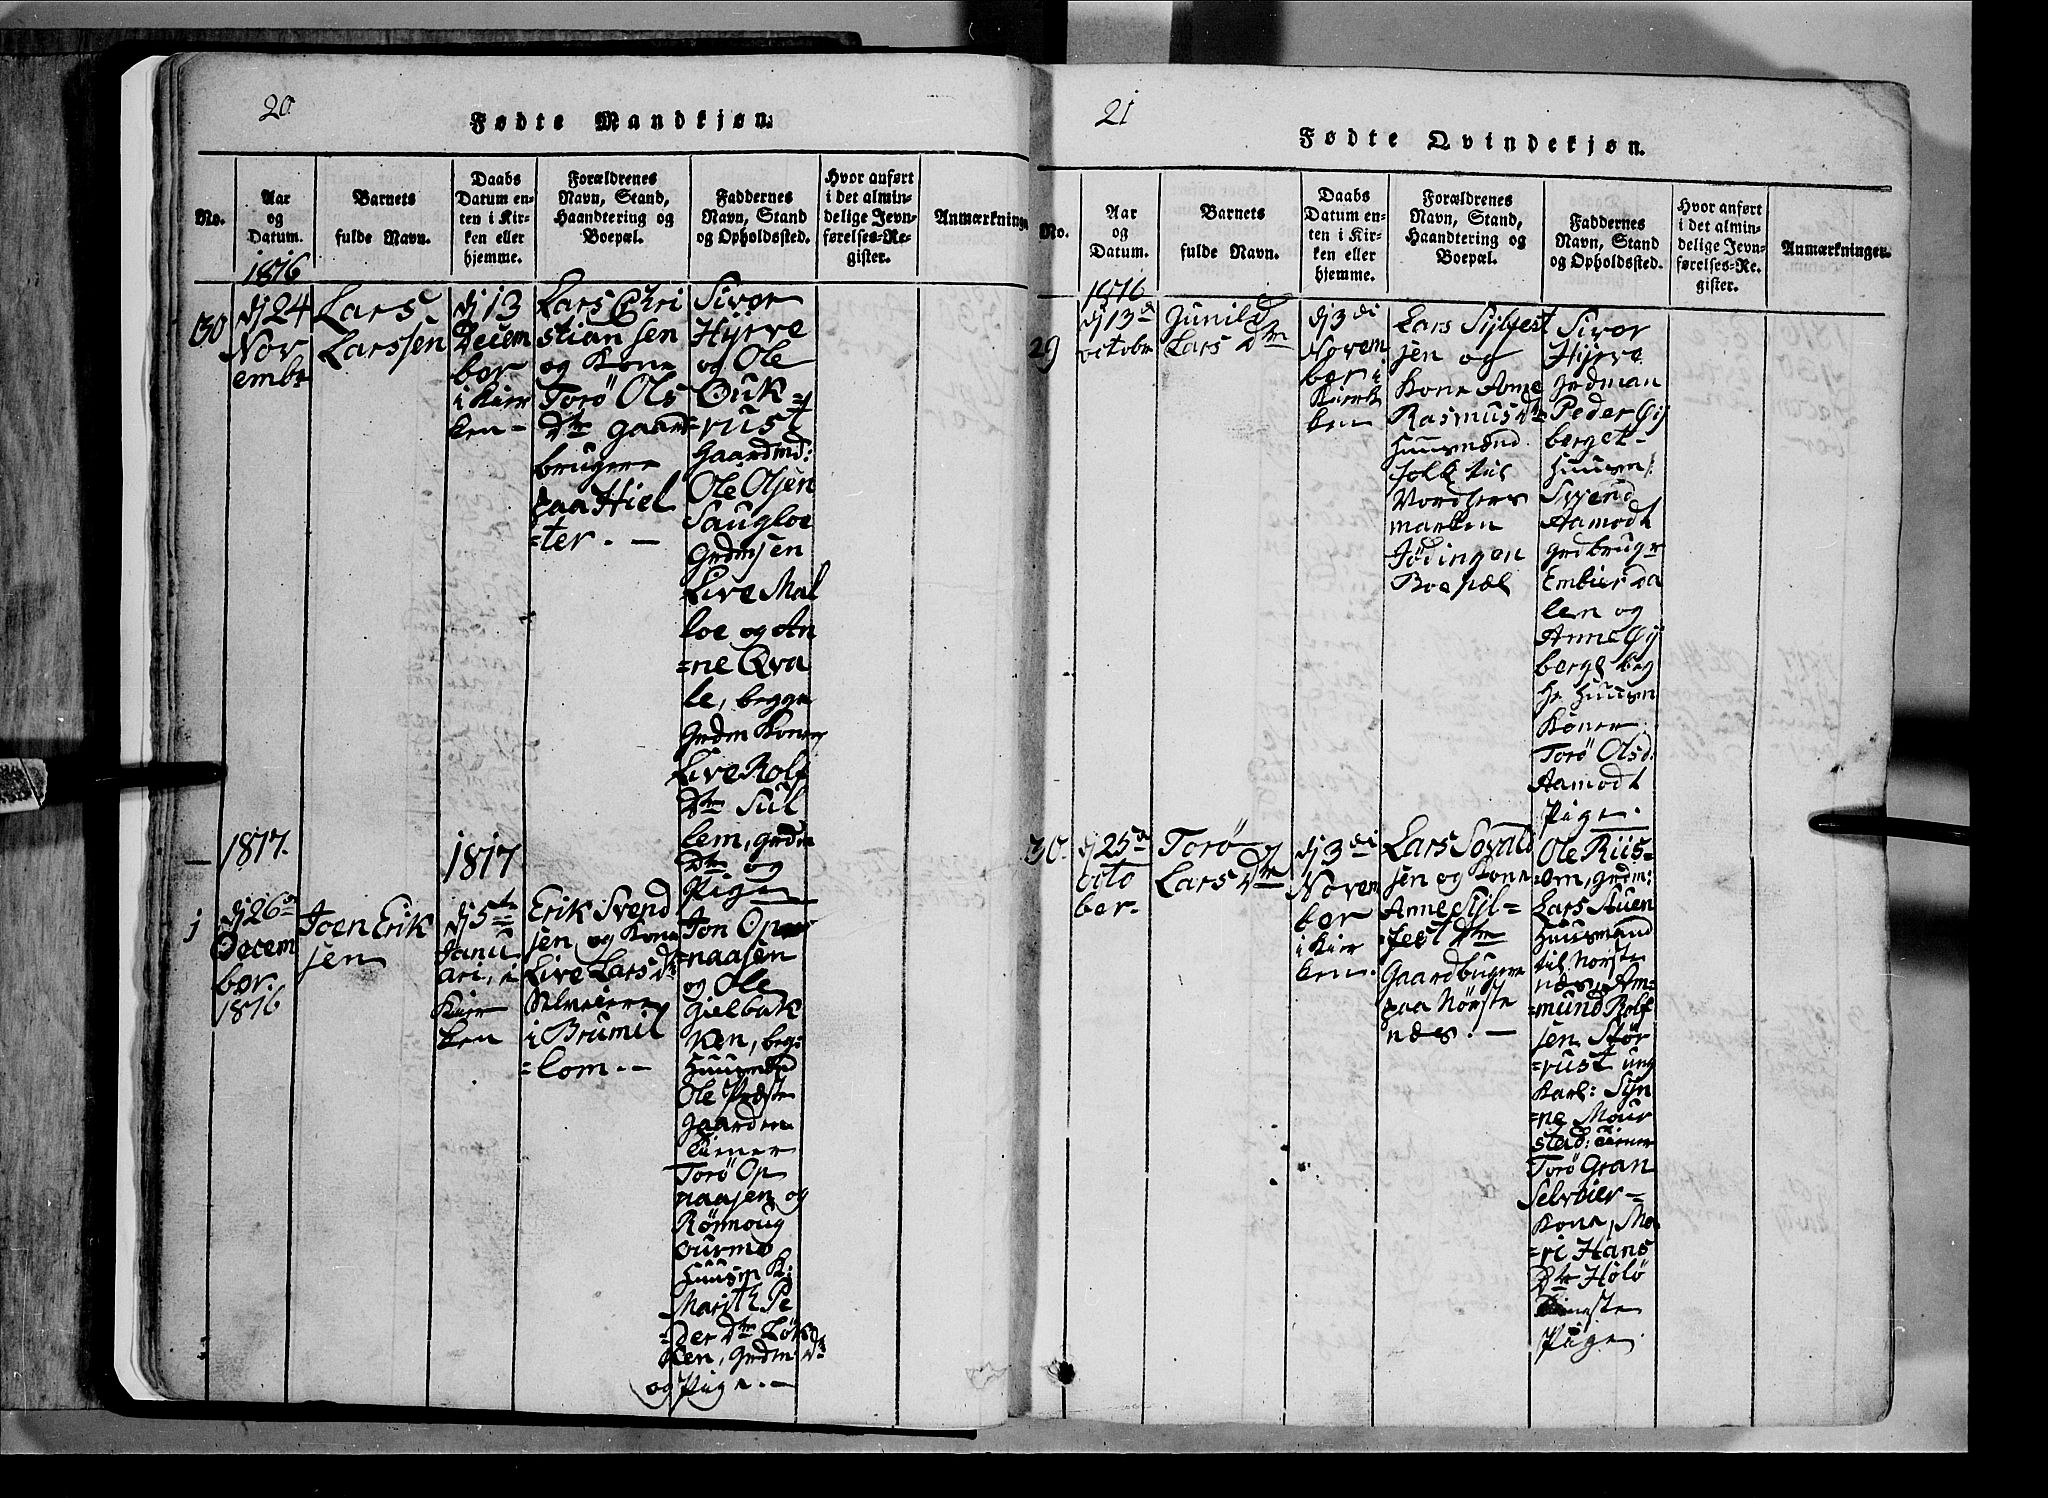 20
Fødte Mandkjøn.
No.
Aar
og
Datum.
Barnets
fulde Navn.
Daabs
Datum en-
ten i Kir-
ken eller
hjemme.
Forældrenes
Navn, Stand,
Haandtering og
Boepæl.
Faddernes
Navn, Stand
og Opholdssted.
Hvor anført
i det almin-
delige Jevn-
førelses-Re-
gister.
Anmærkninger
1816
30
dj 24
Nov
embr
Lars
Larssen
dj 13
Decem
ber
i Kier
ken -
Lars Chri
stiansen
og Kone
Torö Ols
Dtr gaard
brugere
paa Hiel
=ter. -
Sivor
Hyrve
og Ole
Duk=
=rust
Gaardmd:
Ole Olsen
Saugloe
Grdmsen
Live Mal
loe og An
=ne Qva
le, begge
Grdm Koner
Live Rolf
Dtr Sül
lem, Grdm
Dtr og
Pige
1817.
1817
1
dj 26de
Decem
ber.
1816
Joen Erik
sen
dj 5te
Janu
ari, i
Kier
ken
Erik Svend
sen og Kone
Live Lars Dtr
Selveiere
i Brumil
=lom. -
Jon Op
=naasen
og Ole
Gielbak
ken, beg:
Huusmænd
Ole Præste
gaarden
tiener
Torö Op
naasen og
Rönnoug
Huusm K:
Marith Pe
=der Dtr Lök
ken, Grdm Dtr
og Pige. -
21
Fødte Qvindekjøn.
No.
Aar
og
Datum.
Barnets
fulde Navn.
Daabs
Datum en-
ten i Kir-
ken eller
hjemme.
Forældrenes
Navn, Stand,
Haandtering og
Boepæl.
Faddernes
Navn, Stand
og Opholdssted.
Hvor anført
i det almin-
delige Jevn-
førelses-Re-
gister.
Anmærkninger.
1816
29
dj 13de
octobr
Gunild
Lars Dtr
dj 3di
Novem
ber i
Kierk
ken
Lars Sylfest
sen og
Kone Anne
Rasmus Dtr
Huusmænd
folk til
marken
Jödingen
Boepæl
Sivor
Hyrve
Grdman
Peder Gÿ
berget
Huusm:
Svend
Aamodt
Grdbruger
Embier Da
len og
Anne Gÿ
berge beg
ge Huusm
Koner
Torö Olsd:
Aamodt
Pige.
30.
dj 25de
octo
ber.
Torö
Lars Dtr
dj 3di
Novem
ber
i Kier
ken.
Lars Sovald
sen og Kone
Anne Syl=
fest Dtr
Gaardbugere
paa Nörste
næs. -
Ole Riis=
=om, Grdm:
Lars Auen
Huusmand
til Nörste
næs, Am=
=mund Rolf
sen Stör
=rust ung
Karl: Syn
=ne Mour
stad: tiener
Torö Gran
Selveier=
Kone, Ma
=ri Hans
Dtr Hölö
tieneste
Pige.